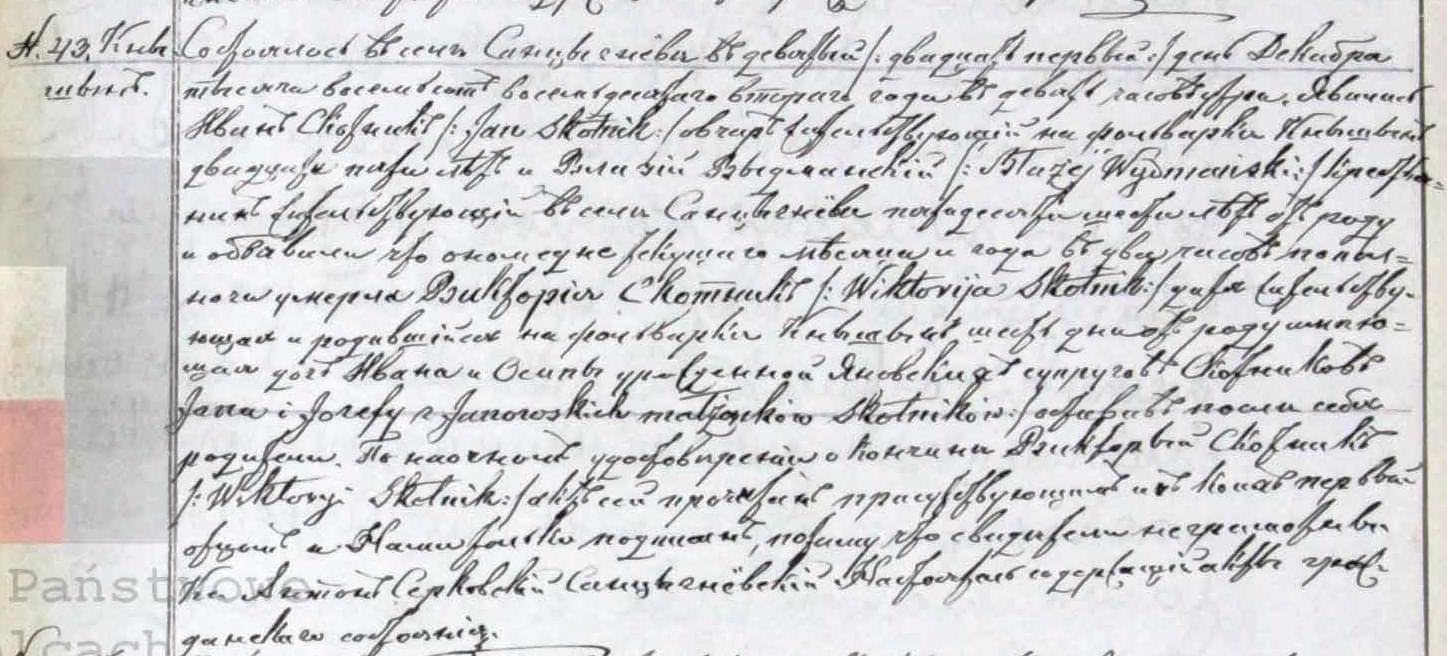 N. 43.
Состоялось въ селѣ въ девятый /: двадцать первый :/ день Декабря
тысяча восемьсотъ восемьдесятаго втораго года въ девять часовъ утра. Явились
Иванъ Скотникъ /: Jan Skotnik :/ овчаръ жительствующій на фольварки
двадцати пяти лѣтъ и Влазій /: Błażej :/ крестья=
нинъ жительствующій въ селѣ пятидесяти шести лѣтъ отъ роду
и объявили что текущаго мѣсяца и года въ два часовъ попол=
ночи умерла Виктория Скотникъ /: Wiktorija Skotnik :/ жительству-
ющая и родившійся на фольварки шесть дни отъ роду имѣю=
щая дочь Ивана и Осипы урожденной Яновскихъ супруговъ Скотниковъ
Jana i Jozefy z Janowskich małżonków Skotników :/ оставивъ после себя
родители. По наочномъ удостовѣреніи о кончини Викторыи Скотникъ
/: Wiktoryi Skotnik :/ актъ сей прочитанъ присутствующимъ первый
отцомъ и Нами только подписанъ, потому что свидители неграмотны
Кс. Антонъ Серковскій содержащій акты граж-
данскаго состоянія.
Państwowe